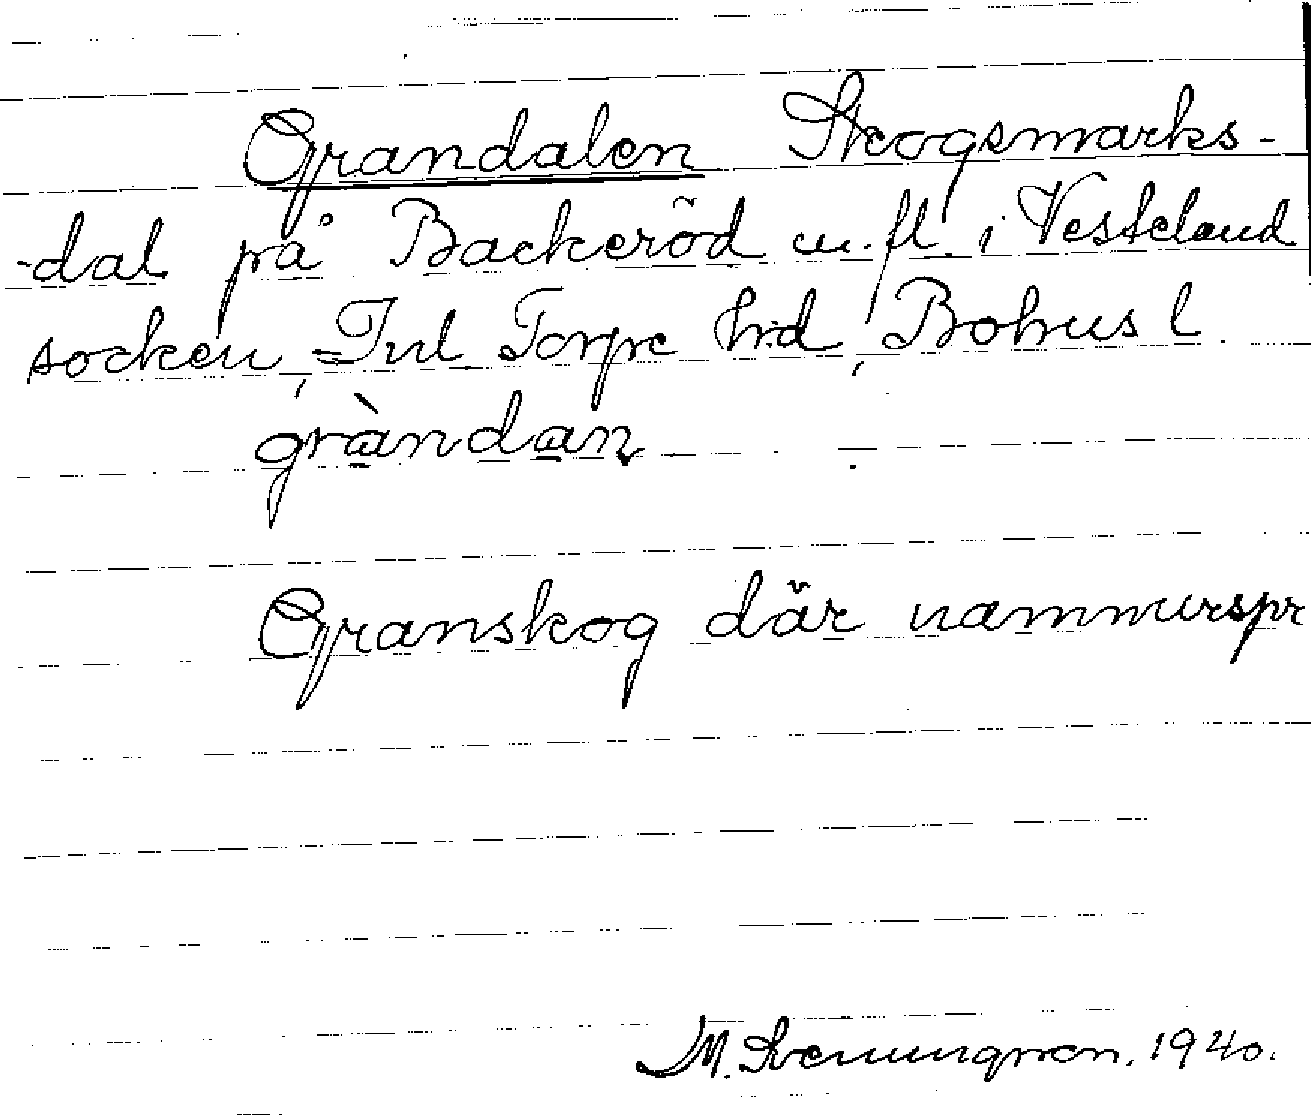 Grandalen Skogsmarks-
-dal på Backeröd m.fl. i Vesteland
socken, Inl. Torpe hrd, Bohus l.
gràndan
Granskog där
M. 1940.